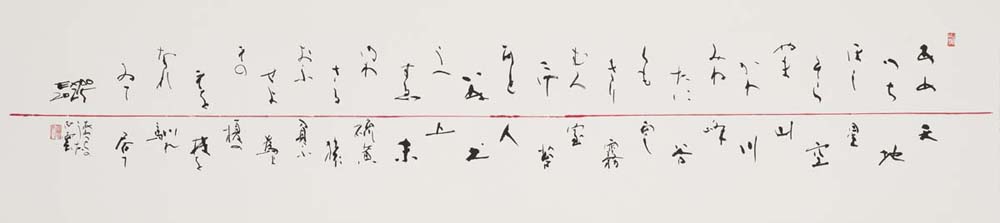 あめ
つち
ほし
そら
やま
かわ
みね
たに
くも
きり
むろ
こけ
ひと
いぬ
うへ
すゑ
ゆわ
さる
おふ
せよ
えの
えを
なれ
ゐて
天
地
星
空
山
川
峰
谷
雲
霧
室
苔
人
犬
上
末
硫黄
猿
負ふ
為よ
榎の
枝を
馴れ
居て